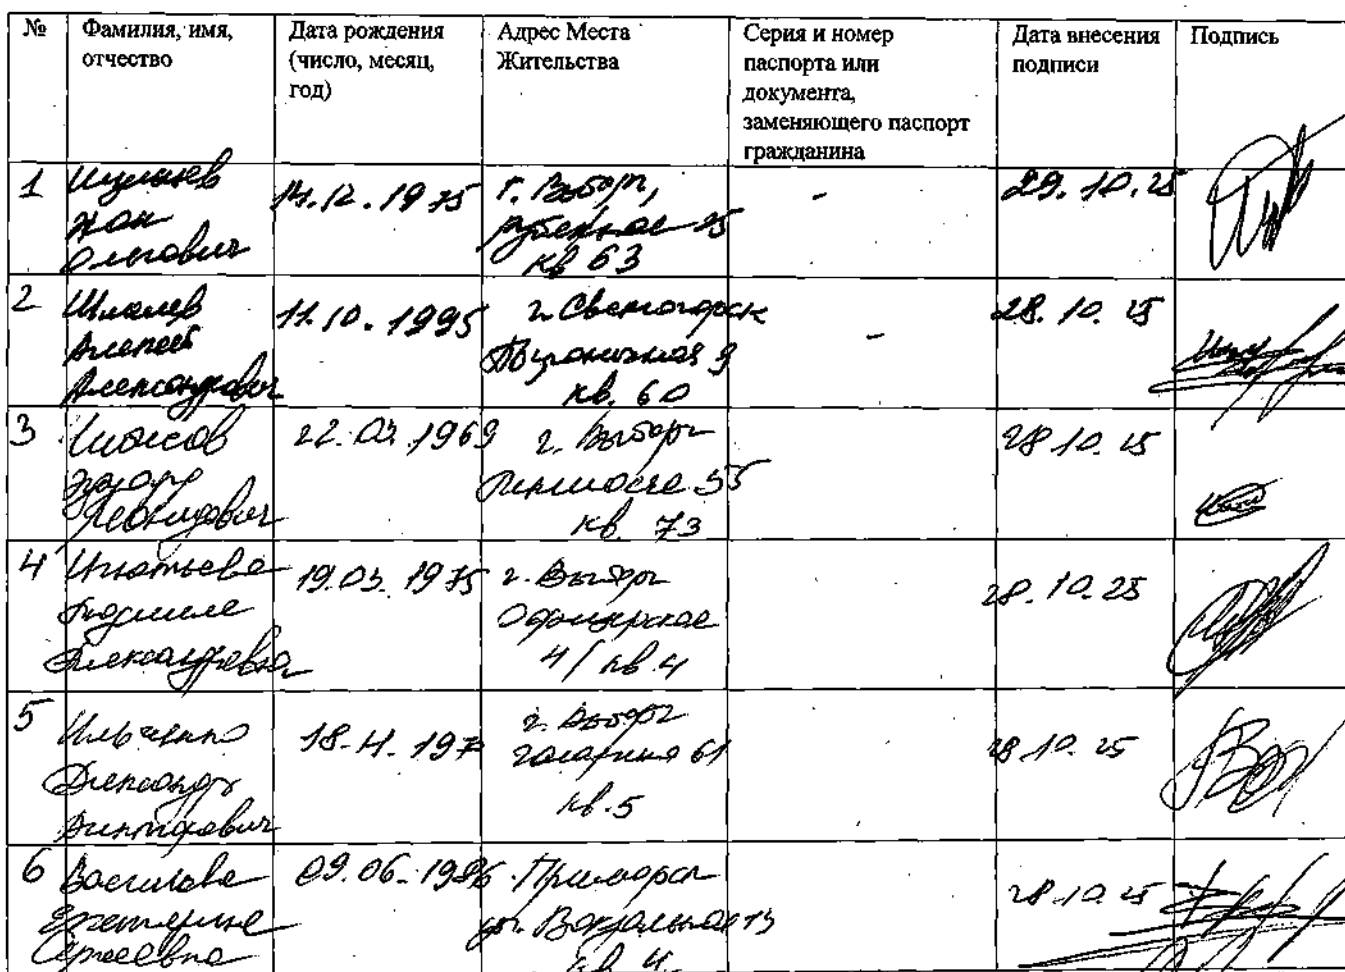 № Фамилия, имя, отчество Дата рождения (число, месяц, год) Адрес Места Жительства Серия и номер паспорта или документа, заменяющего паспорт гражданина Дата внесения подписи Подпись
1
Олегович
14.12.1975
г. Выборг,
кв 63
-
29.10.25
2
Алексей
Александрович
11.10.1995
г. Светогорск
Пограничная 9
кв. 60
-
28.10.25
3
Эдуард
Леонидович
1969
г. Выборг
кв. 73
28.10.25
4 Игнатьева
Людмила
Александровна
19.03.1975
г. Выборг
Офицерская
4/ кв.4
28.10.25
5 Ильченко
Александр
Викторович
г. Выборг
Гагарина 61
кв.5
28.10.25
6
Екатерина
Сергеевна
09.06.1986
Приморск
ул. Вокзальная 13
кв 4.
28.10.25